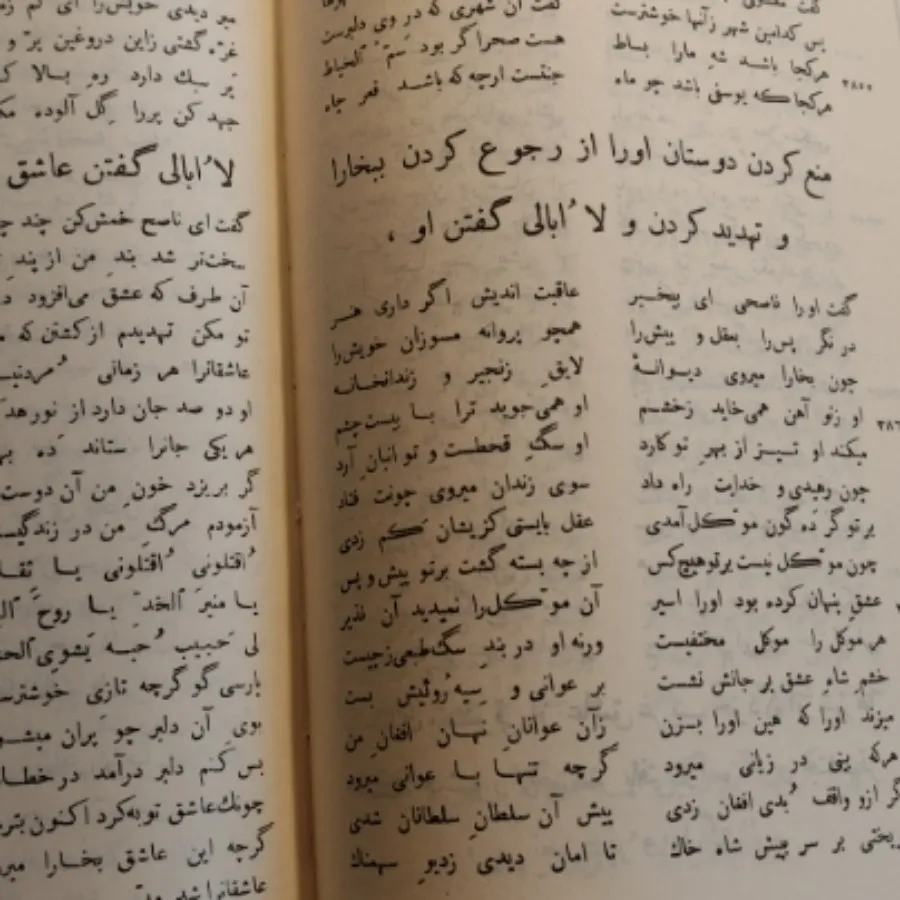 پس کدامین شهر زآنها خوشترست گفت آن شهری که در وی دلبرست
هرکجا باشد شهِ مارا بساط هست صحرا گر بود سَمّ ٱلخیاط
۳۸۰۰ هرکجا که یوسفی باشد چو ماه جنتست ارچه که باشد قعرِ چاه
منع کردن دوستان اورا از رجوع کردن ببخارا
و تهدید کردن و لاُابالی گفتن او ،
گفت اورا ناصحی ای بیخبر عاقبت اندیش اگر داری هنر
در نگر پس‌را بعقل و پیش‌را همچو پروانه مسوزان خویش‌را
چون بخارا میروی دیوانهٔ لایقِ زنجیر و زندانخانهٔ
او زتو آهن همی‌خاید زخشم او همی‌جوید ترا با بیست چشم
میکند او تیز از بهرِ تو کارد او سگِ قحطست و تو انبانِ آرد
چون رهیدی و خدایت راه داد سوی زندان میروی چونت فتاد
بر تو گر دَه گون موکّل آمدی عقل بایستی کزیشان کَم زدی
چون موکّل نیست برتو هیچ‌کس از چه بسته گشت برتو پیش و پس
عشقِ پنهان کرده بود اورا اسیر آن موکّل‌را نمیدید آن نذیر
هر موکل‌را موکل مختفیست ورنه او در بندِ سگ‌طبعی زچیست
خشمِ شاهِ عشق بر جانش نشست بر عوانی و سیه‌رُوئیش بست
میزند اورا که هین اورا بزن زآن عوانانِ نهان افغانِ من
هرکه بینی در زیانی میرود گرچه تنها با عوانی میرود
گر ازو واقف بُدی افغان زدی پیش آن سلطانِ سلطانان شدی
ریختی بر سر بپیش شاه خاك تا امان دیدی زدیوِ سهمناك
میر دیدی خویش‌را ای کم ز
غرّه گشتی زاین دروغین پرّ و
پرّ سبك دارد رهِ بالا ک
جهد کن پررا گِل آلوده مک
لاُابالی گفتن عاشق
گفت ای ناصح خمش‌کن چند چ
سخت‌تر شد بندِ من از پندِ
آن طرف که عشق می‌افزود د
تو مکن تهدیدم از کشتن که
عاشقانرا هر زمانی مُردنیـ
او دو صد جان دارد از نور هد
هریکی جانرا ستاند دَه به
گر بریزد خونِ من آن دوست
آزمودم مرگِ من در زندگیست
اُقتلونی اُقتلونی یا ثقا
یا منیرَ ٱلخدّ یا روحَ ٱلـ
لی حَبیب حُبّه یَشوِی ٱلحـ
پارسی گو گرچه تازی خوشترسـ
بوی آن دلبر چو پرّان میشـو
بس کنم دلبر درآمد در خطا
چونك عاشق توبه‌کرد اکنون بتر
گرچه این عاشق بخارا میر